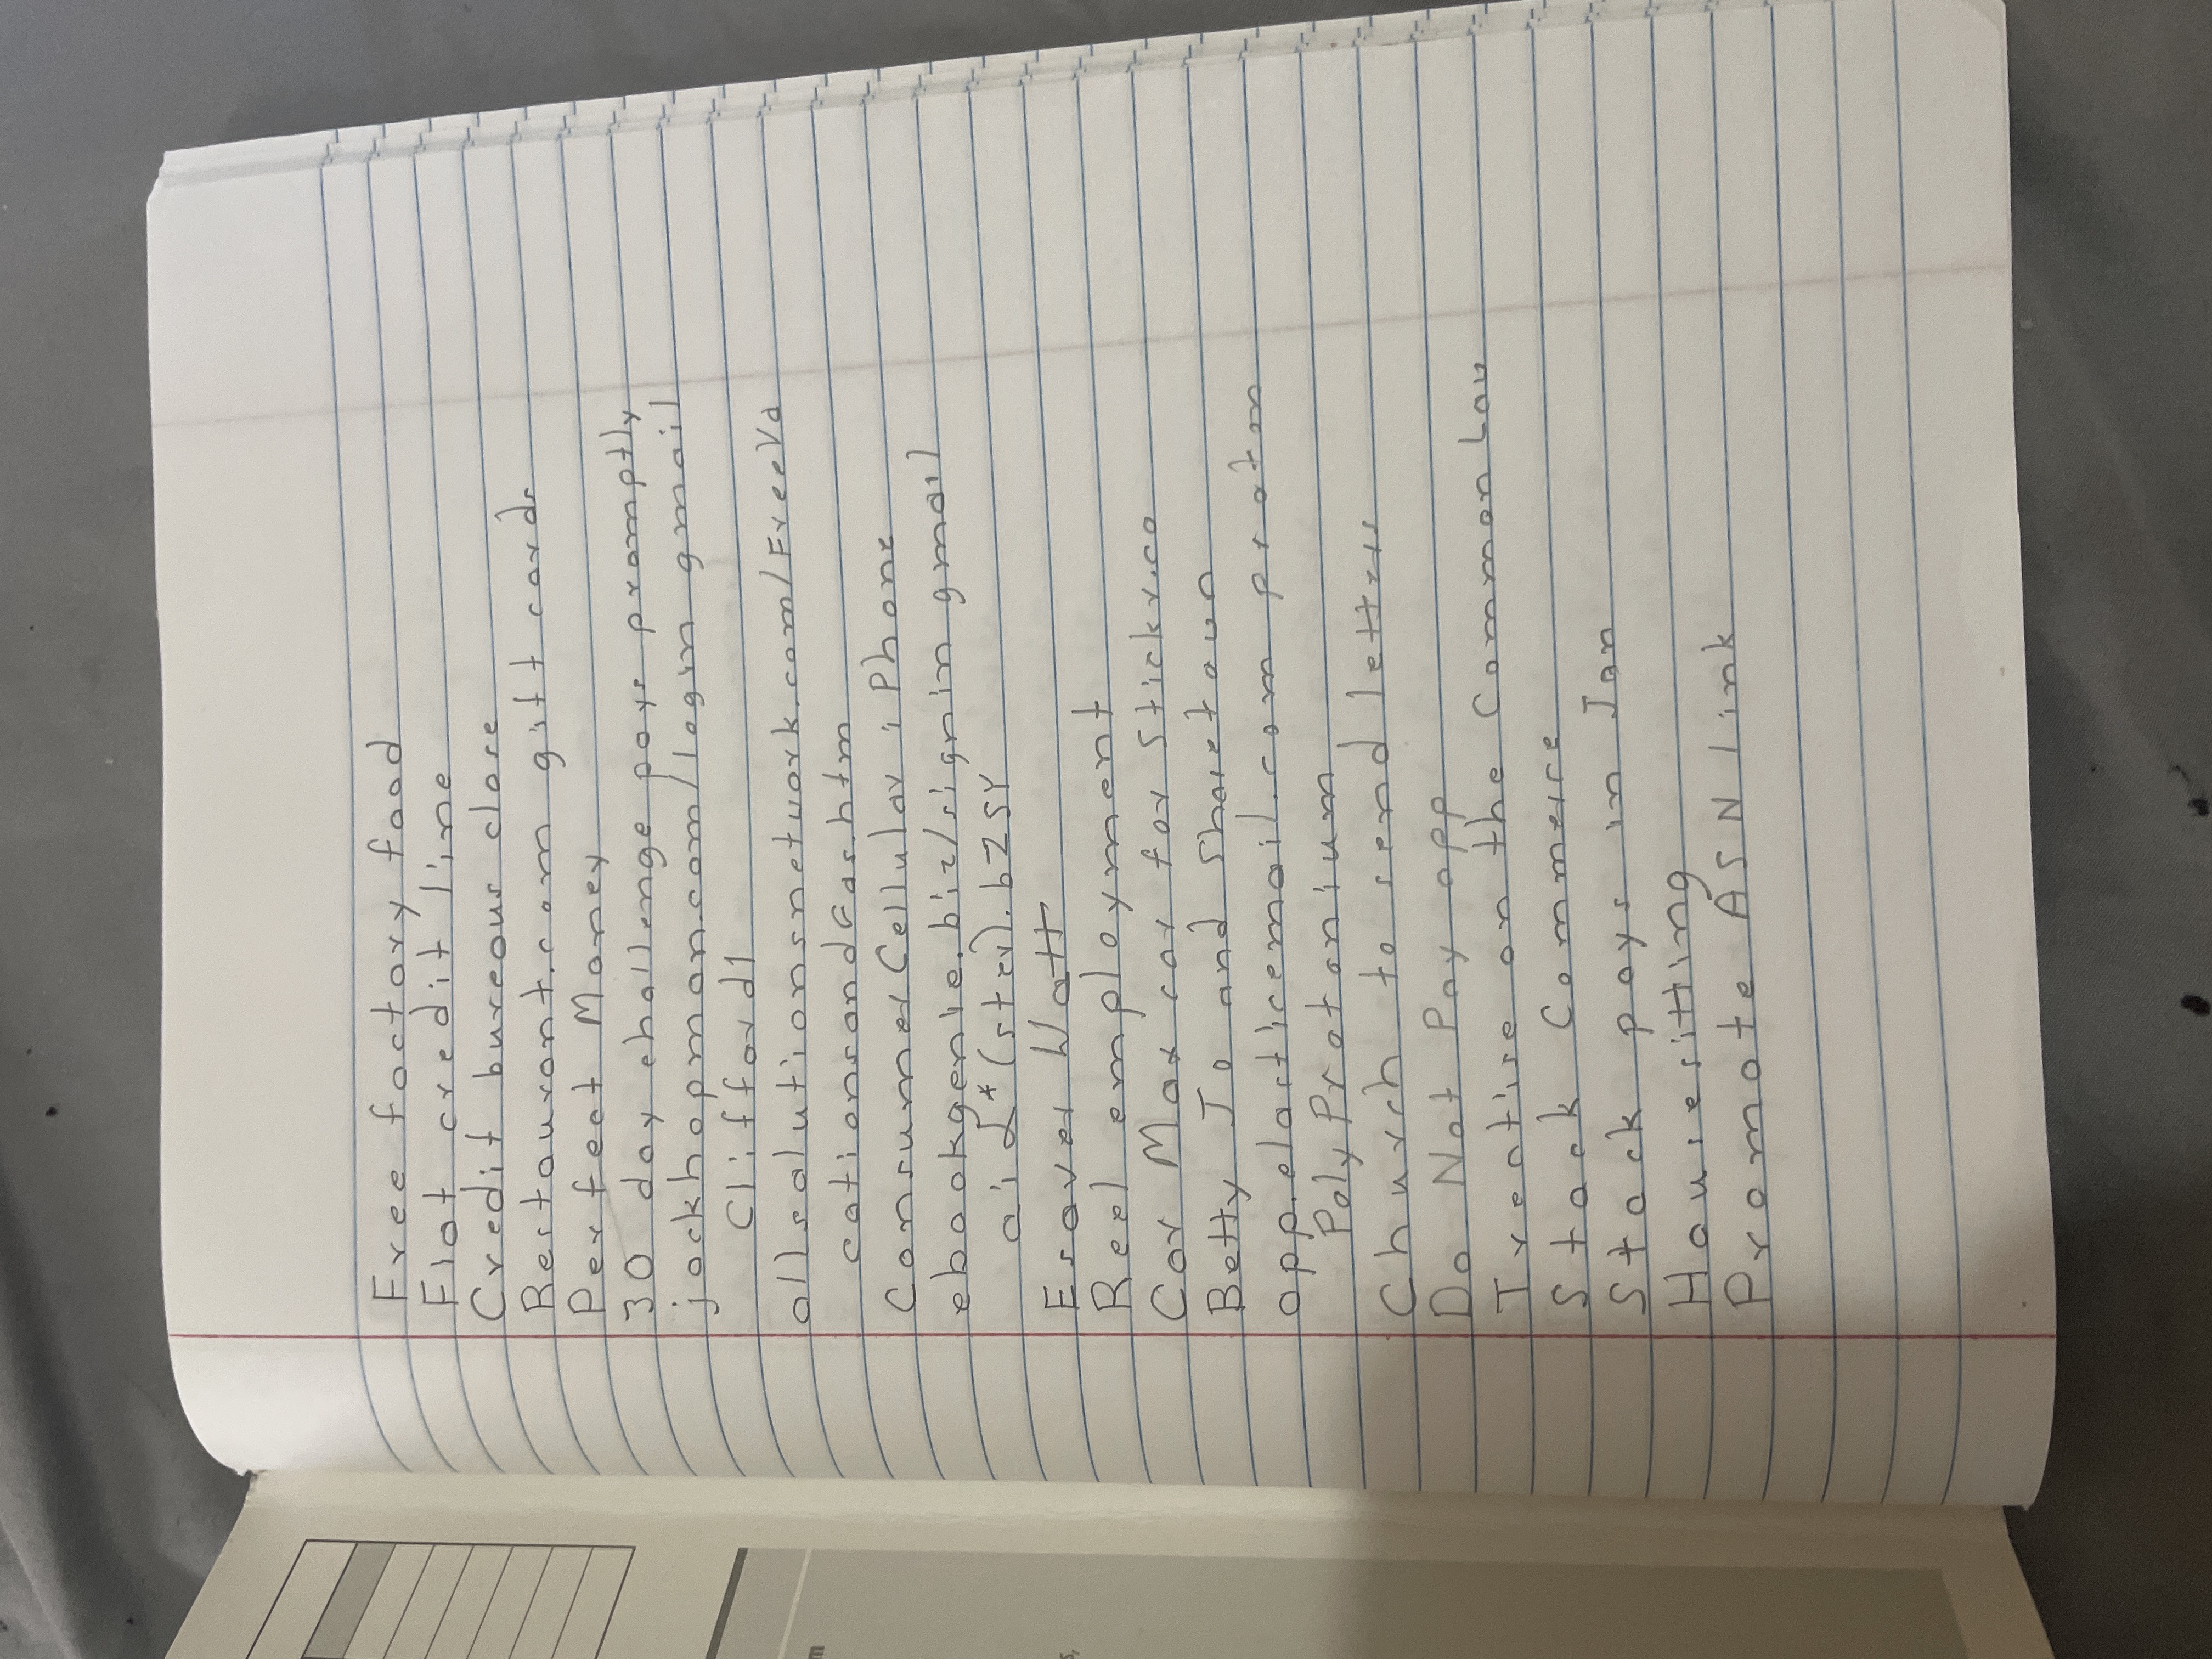 Free factory food
Flat credit line
Credit bureaus close
Restaurant.com gift cards
Perfect Money
30 day challenge pays promptly
jackhopman.com/login gmail
Clifford1
allsolutionsnetwork.com/FreeVa
cationsandCash.htm
Consumer Cellular iPhone
ebookgenie.biz/signin gmail
(ster).bZSY
Esaver Watt
Reel employment
Car Max car for Stickr.co
Betty Jo and Shoretown
app.elasticemail.com protm
PolyProtonium
Church to send letters
Do Not Pay app
Treatise on the Common Law
Stack Commerce
Stack pays in Jan
Housesitting
Promote ASN link